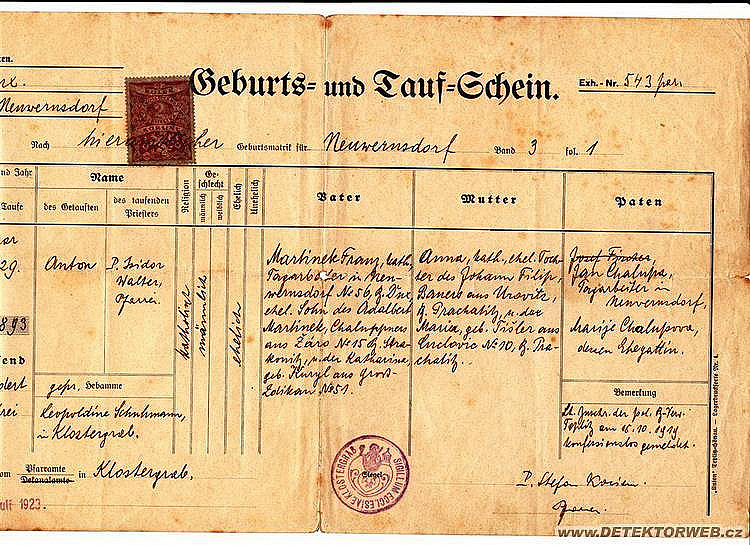 ten.
rx.
Neuwernsdorf
Geburts- und Tauf-Schein.
Exh.-Nr. 543 par.
Nach hierortischer Geburtsmatrik für Neuwernsdorf Band 3 fol. 1
nd Jahr
Taufe
Name
des Getauften
des taufenden
Priesters
Religion
Ge-
schlecht
männlich
weiblich
Ehelich
Unehelich
Vater
Mutter
Paten
29.
893
Anton
P. Isidor
Walter,
Pfarrer
katholisch
männlich
ehelich
Martinek Franz, kath.
Tagarbeiter in Neu-
wernsdorf No 56, B. Dux,
ehel. Sohn des Adalbert
Martinek, Chaluppners
aus Záro No 15 B. Stra-
konitz, u. der Katharina,
geb. Kuryl aus Groß-
Zdikau No 51.
Anna, kath., ehel. Toch-
ter des Johann Filip,
Bauers aus
B. Prachatitz, u. der
Maria, geb. Tišler aus
No 10, B. Pra-
chatitz.
Josef Fischer,
Jan Chalupa,
Tagarbeiter in
Neuwernsdorf,
Marije Chalupova,
dessen Ehegattin.
gepr. Hebamme
Leopoldine Schuhmann,
in Klostergrab.
Bemerkung
Lt. Zuschr. der pol. B. Verw.
Teplitz am 15.10.1919
konfessionslos gemeldet.
om Pfarramte
Dekanalamte in Klostergrab.
uli 1923.
SIGILLUM ECCLESIAE KLOSTERGRAB
Siegel
P. Stefan
Pfarrer
www.DETEKTORWEB.cz